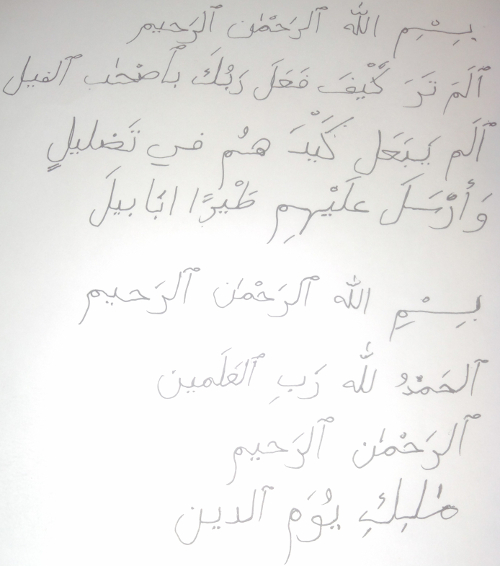 بِسْمِ ٱللَّهِ ٱلرَحْمٰن ٱلرَحيم
ٱَلَمَ تَرَ كَيْفَ فَعَلَ رَبُكَ بِأَصْحٰب ٱلفيل
ٱَلَم يَجَعَل كَيْدَ هُم في تَضليلٍ
وَأَرْسَلَ عَلَيْهِم طَيْرًا ابَابيلَ
بِسْمِ ٱللَّه ٱلرَحْمٰن ٱلرَحيم
ٱلحَمْدُ للَّه رَبِ ٱلعَلَمين
ٱلرَحْمٰن ٱلرَحيم
مٰلِكِ يُوَم ٱلدين